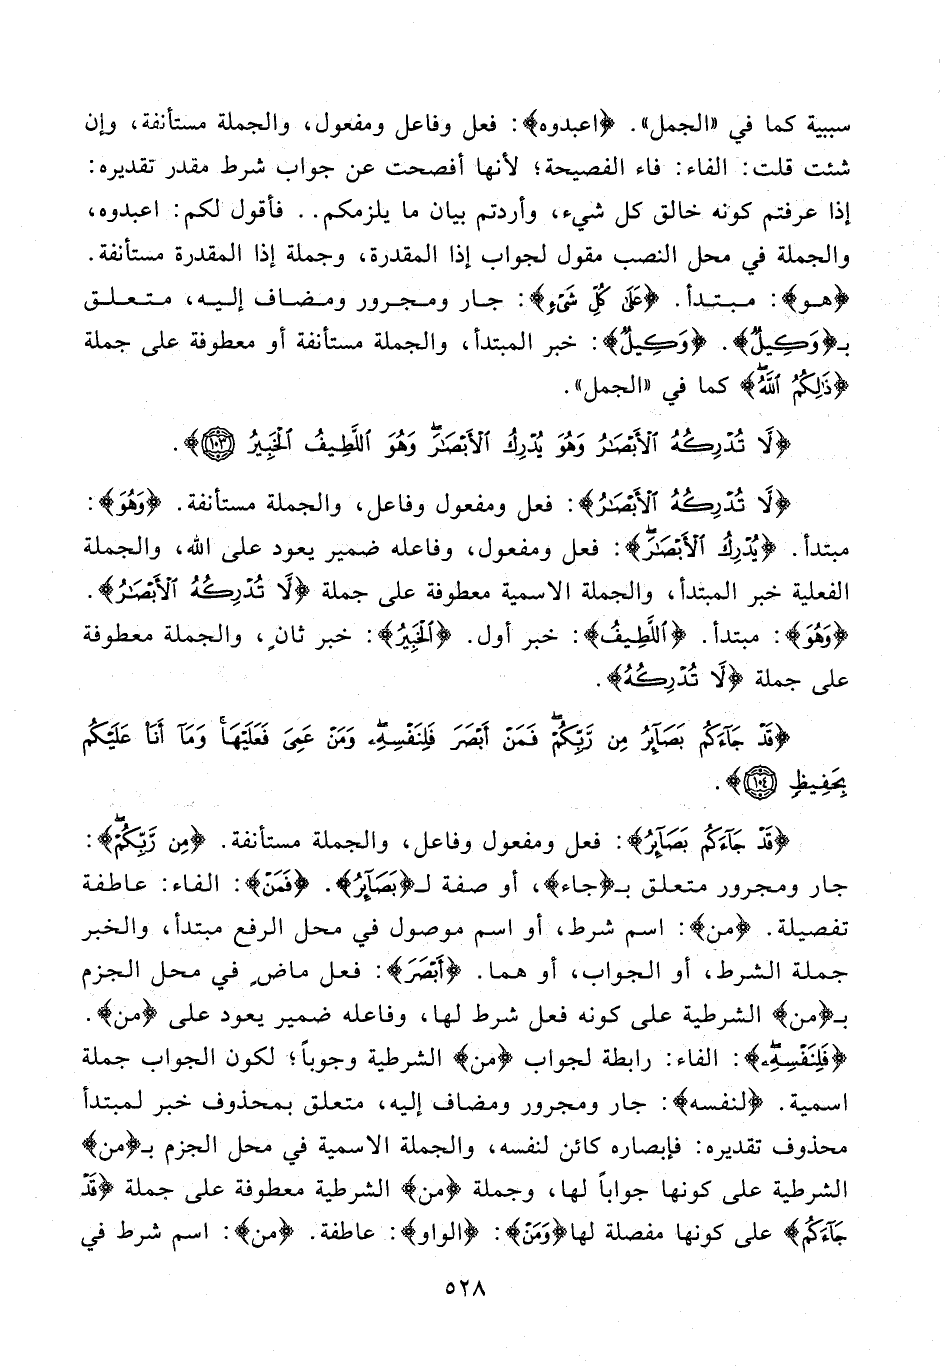 سببية كما في «الجمل». ﴿اعبدوه﴾: فعل وفاعل ومفعول، والجملة مستأنفة، وإن
شئت قلت: الفاء: فاء الفصيحة؛ لأنها أفصحت عن جواب شرط مقدر تقديره:
إذا عرفتم كونه خالق كل شيء، وأردتم بيان ما يلزمكم.. فأقول لكم: اعبدوه،
والجملة في محل النصب مقول لجواب إذا المقدرة، وجملة إذا المقدرة مستأنفة.
﴿هو﴾: مبتدأ. ﴿عَلَىٰ كُلِّ شَىْءٍ﴾: جار ومجرور ومضاف إليه، متعلق
بـ﴿وَكِيلٌ﴾. ﴿وَكِيلٌ﴾: خبر المبتدأ، والجملة مستأنفة أو معطوفة على جملة
﴿ذَٰلِكُمُ ٱللَّهُ﴾ كما في «الجمل».
﴿لَّا تُدْرِكُهُ ٱلْأَبْصَـٰرُ وَهُوَ يُدْرِكُ ٱلْأَبْصَـٰرَۖ وَهُوَ ٱللَّطِيفُ ٱلْخَبِيرُ ١٠٣﴾.
﴿لَّا تُدْرِكُهُ ٱلْأَبْصَـٰرُ﴾: فعل ومفعول وفاعل، والجملة مستأنفة. ﴿وَهُوَ﴾:
مبتدأ. ﴿يُدْرِكُ ٱلْأَبْصَـٰرَۖ﴾: فعل ومفعول، وفاعله ضمير يعود على الله، والجملة
الفعلية خبر المبتدأ، والجملة الاسمية معطوفة على جملة ﴿لَّا تُدْرِكُهُ ٱلْأَبْصَـٰرُ﴾.
﴿وَهُوَ﴾: مبتدأ. ﴿ٱللَّطِيفُ﴾: خبر أول. ﴿ٱلْخَبِيرُ﴾: خبر ثانٍ، والجملة معطوفة
على جملة ﴿لَّا تُدْرِكُهُ﴾.
﴿قَدْ جَآءَكُم بَصَآئِرُ مِن رَّبِّكُمْۖ فَمَنْ أَبْصَرَ فَلِنَفْسِهِۦۖ وَمَنْ عَمِىَ فَعَلَيْهَاۚ وَمَآ أَنَا۠ عَلَيْكُم
بِحَفِيظٍ ١٠٤﴾.
﴿قَدْ جَآءَكُم بَصَآئِرُ﴾: فعل ومفعول وفاعل، والجملة مستأنفة. ﴿مِن رَّبِّكُمْۖ﴾:
جار ومجرور متعلق بـ﴿جاء﴾، أو صفة لـ﴿بَصَآئِرُ﴾. ﴿فَمَنْ﴾: الفاء: عاطفة
تفصيلة. ﴿من﴾: اسم شرط، أو اسم موصول في محل الرفع مبتدأ، والخبر
جملة الشرط، أو الجواب، أو هما. ﴿أَبْصَرَ﴾: فعل ماضٍ في محل الجزم
بـ﴿من﴾ الشرطية على كونه فعل شرط لها، وفاعله ضمير يعود على ﴿من﴾.
﴿فَلِنَفْسِهِۦۖ﴾: الفاء: رابطة لجواب ﴿من﴾ الشرطية وجوباً؛ لكون الجواب جملة
اسمية. ﴿لنفسه﴾: جار ومجرور ومضاف إليه، متعلق بمحذوف خبر لمبتدأ
محذوف تقديره: فإبصاره كائن لنفسه، والجملة الاسمية في محل الجزم بـ﴿من﴾
الشرطية على كونها جواباً لها، وجملة ﴿من﴾ الشرطية معطوفة على جملة ﴿قَدْ
جَآءَكُم﴾ على كونها مفصلة لها﴿وَمَنْ﴾: ﴿الواو﴾: عاطفة. ﴿من﴾: اسم شرط في
٥٢٨